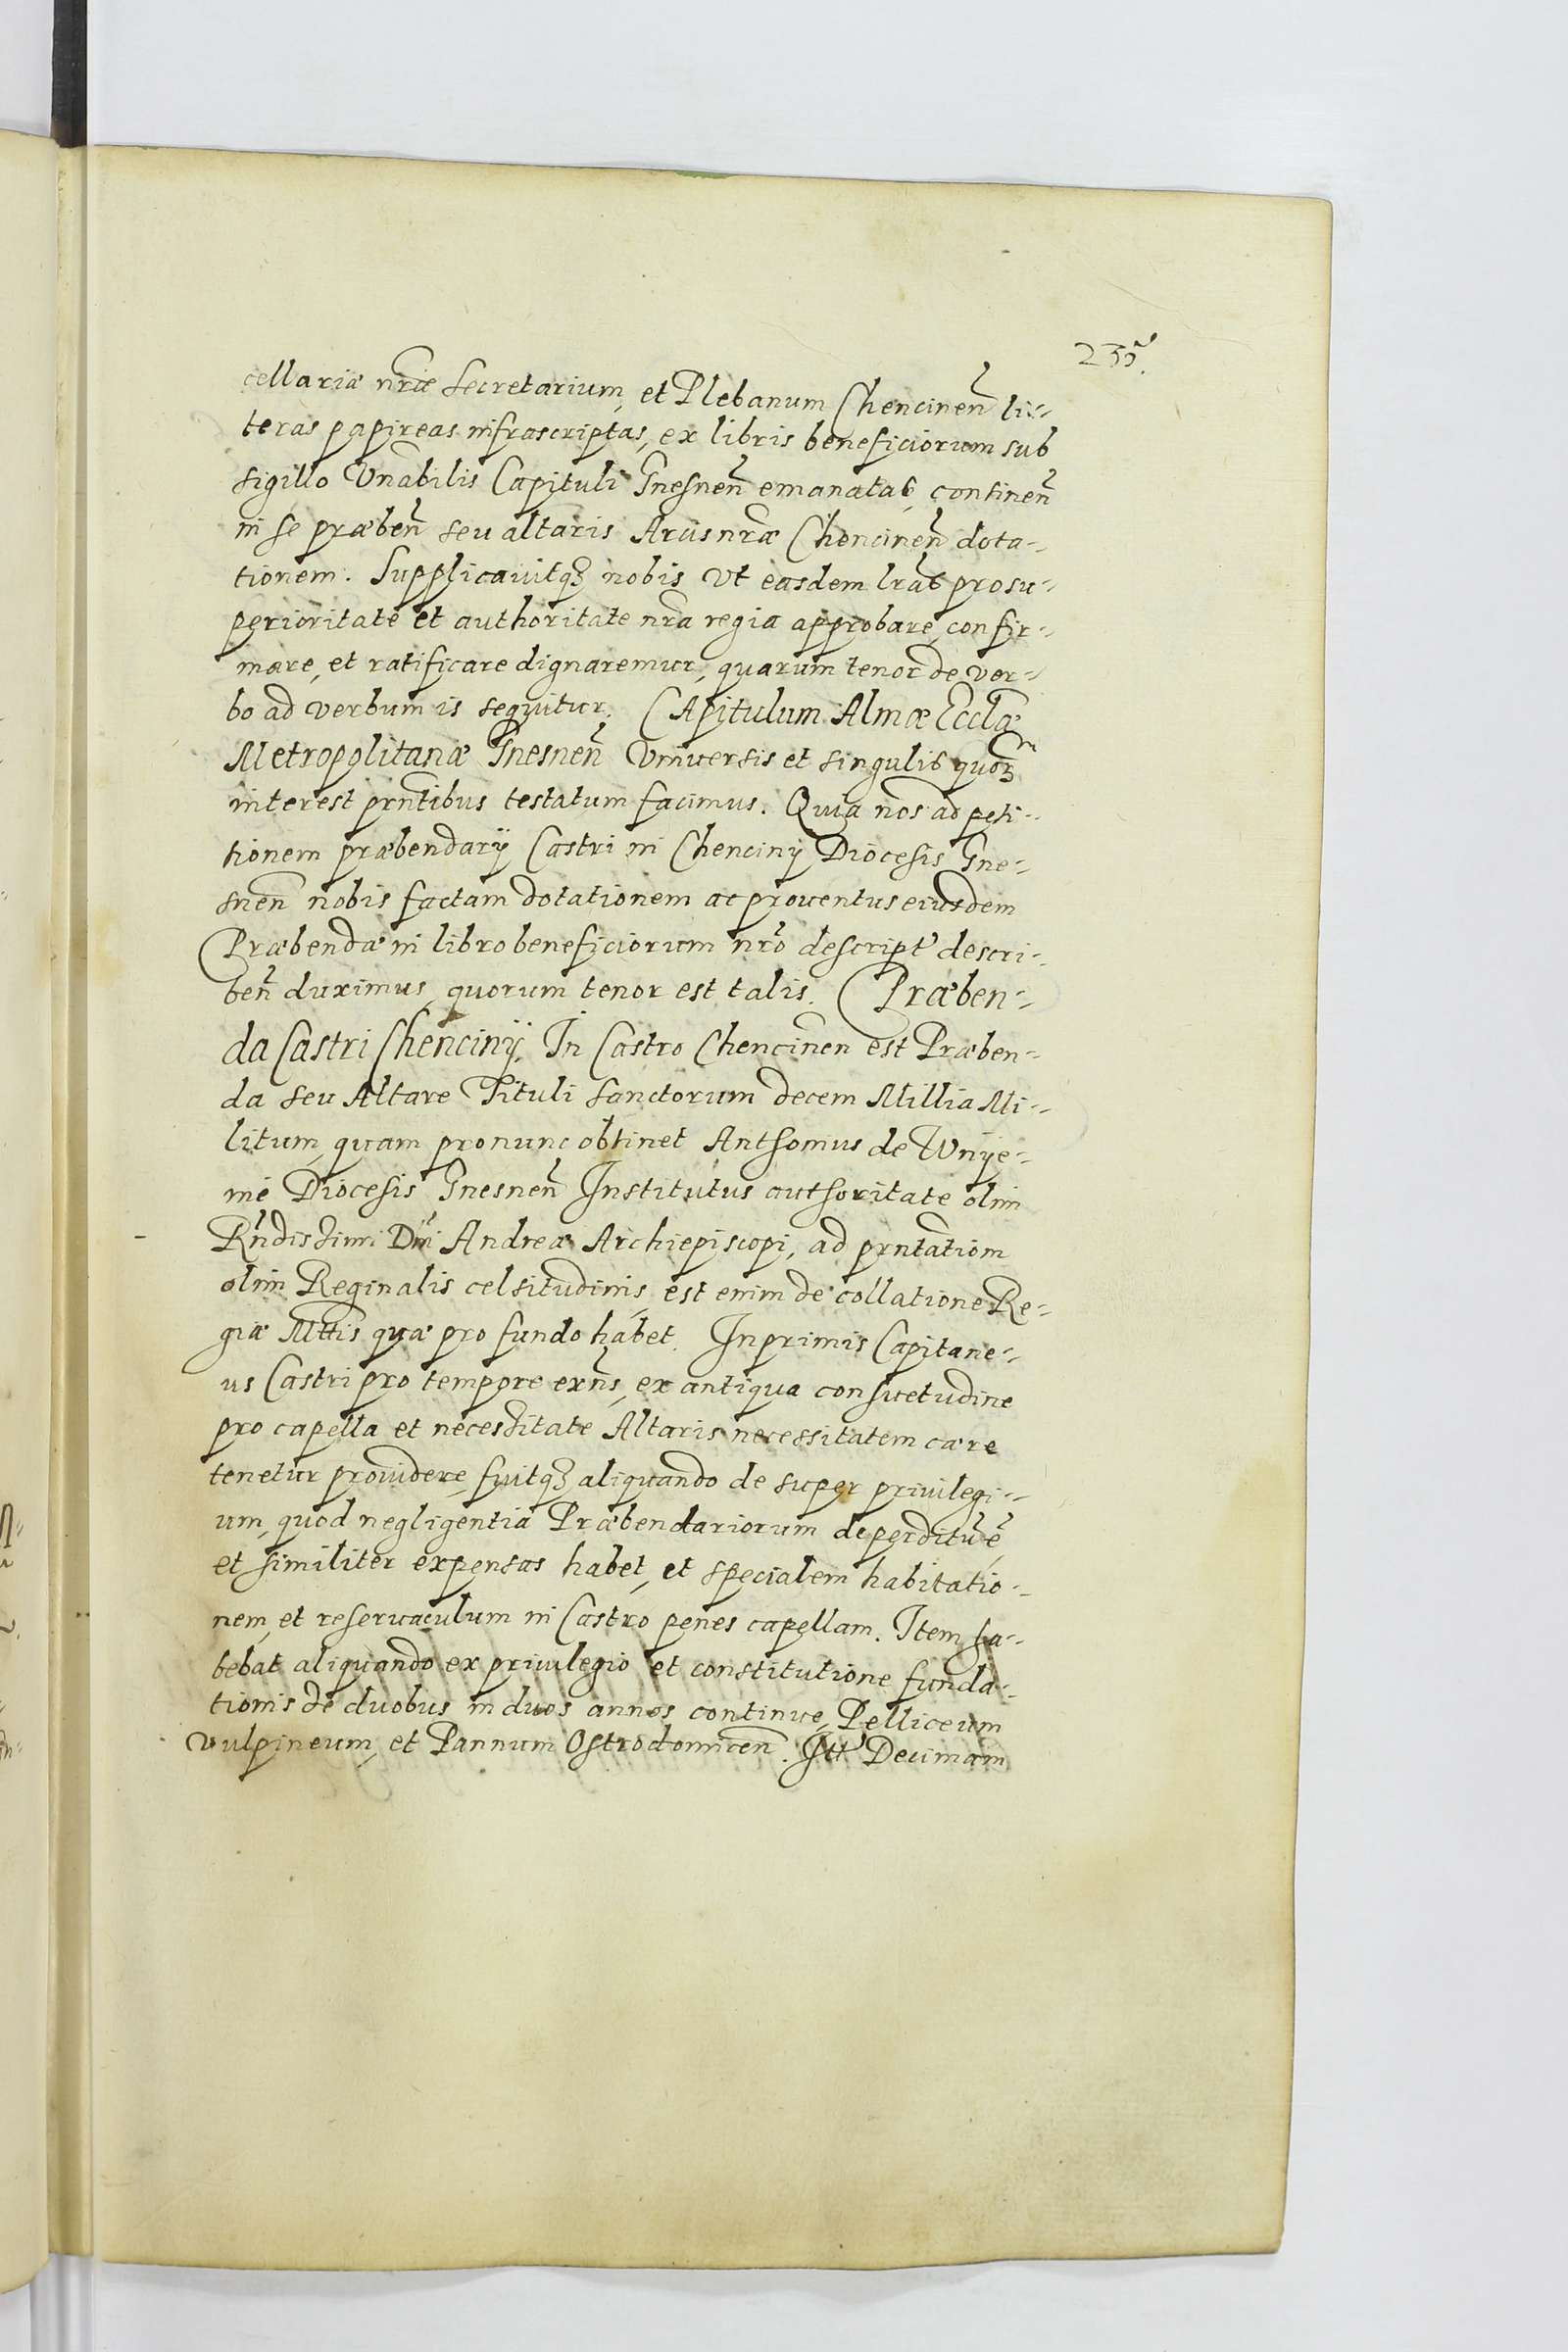 cellariæ nræ Secretarium, et Plebanum Chencinen̄ li-
teras papireas infrascriptas, ex libris beneficiorum sub
sigillo Vnabilis Capituli Gnesnen̄ emanatas, continen̄
in se præben̄ seu altaris Arcis nræ Chencinen̄ dota-
tionem. Supplicavitqȝ nobis vt easdem lras pro su-
perioritate et authoritate nra regia approbare, confir-
mare, et ratificare dignaremur, quarum tenor de ver-
bo ad verbum is sequitur. CApitulum Almæ Eccłæ
Metropolitanæ Gnesnen̄ Vniversis et singulis quorȝ
interest prntibus testatum facimus. Quia nos ad peti-
tionem præbendarÿ Castri in Chencinÿ Diocesis Gne-
snen̄ nobis factam dotationem ac proventus eiusdem
Præbendæ in libro beneficiorum nro descript' descri-
ben̄ duximus, quorum tenor est talis. Præben-
da Castri Chencinÿ. In Castro Chencinen est Præben-
da seu Altare Tituli Sanctorum decem Millia Mi-
litum, quam pro nunc obtinet Anthonius de Wnÿe-
me Diocesis Gnesnen̄ Institutus authoritate olim
Rn̄dissimi Dn̄i Andreæ Archiepiscopi, ad prntationem
olim Reginalis celsitudinis, est enim de collatione Re-
giæ Mttis quæ pro fundo habet. Inprimis Capitane-
us Castri pro tempore exn̄s, ex antiqua consvetudine
pro capella et necessitate Altaris necessitatem cæræ
tenetur providere, fuitqȝ aliquando de super privilegi-
um, quod negligentia Præbendariorum deperditū ē,
et similiter expensas habet, et specialem habitatio-
nem, et reservaculum in Castro penes capellam. Item ha-
bebat aliquando ex privilegio et constitutione funda-
tionis de duobus in duos annos continue, Pelliceum
vulpineum, et Pannum Ostrodomicen̄. Itt' Decimam